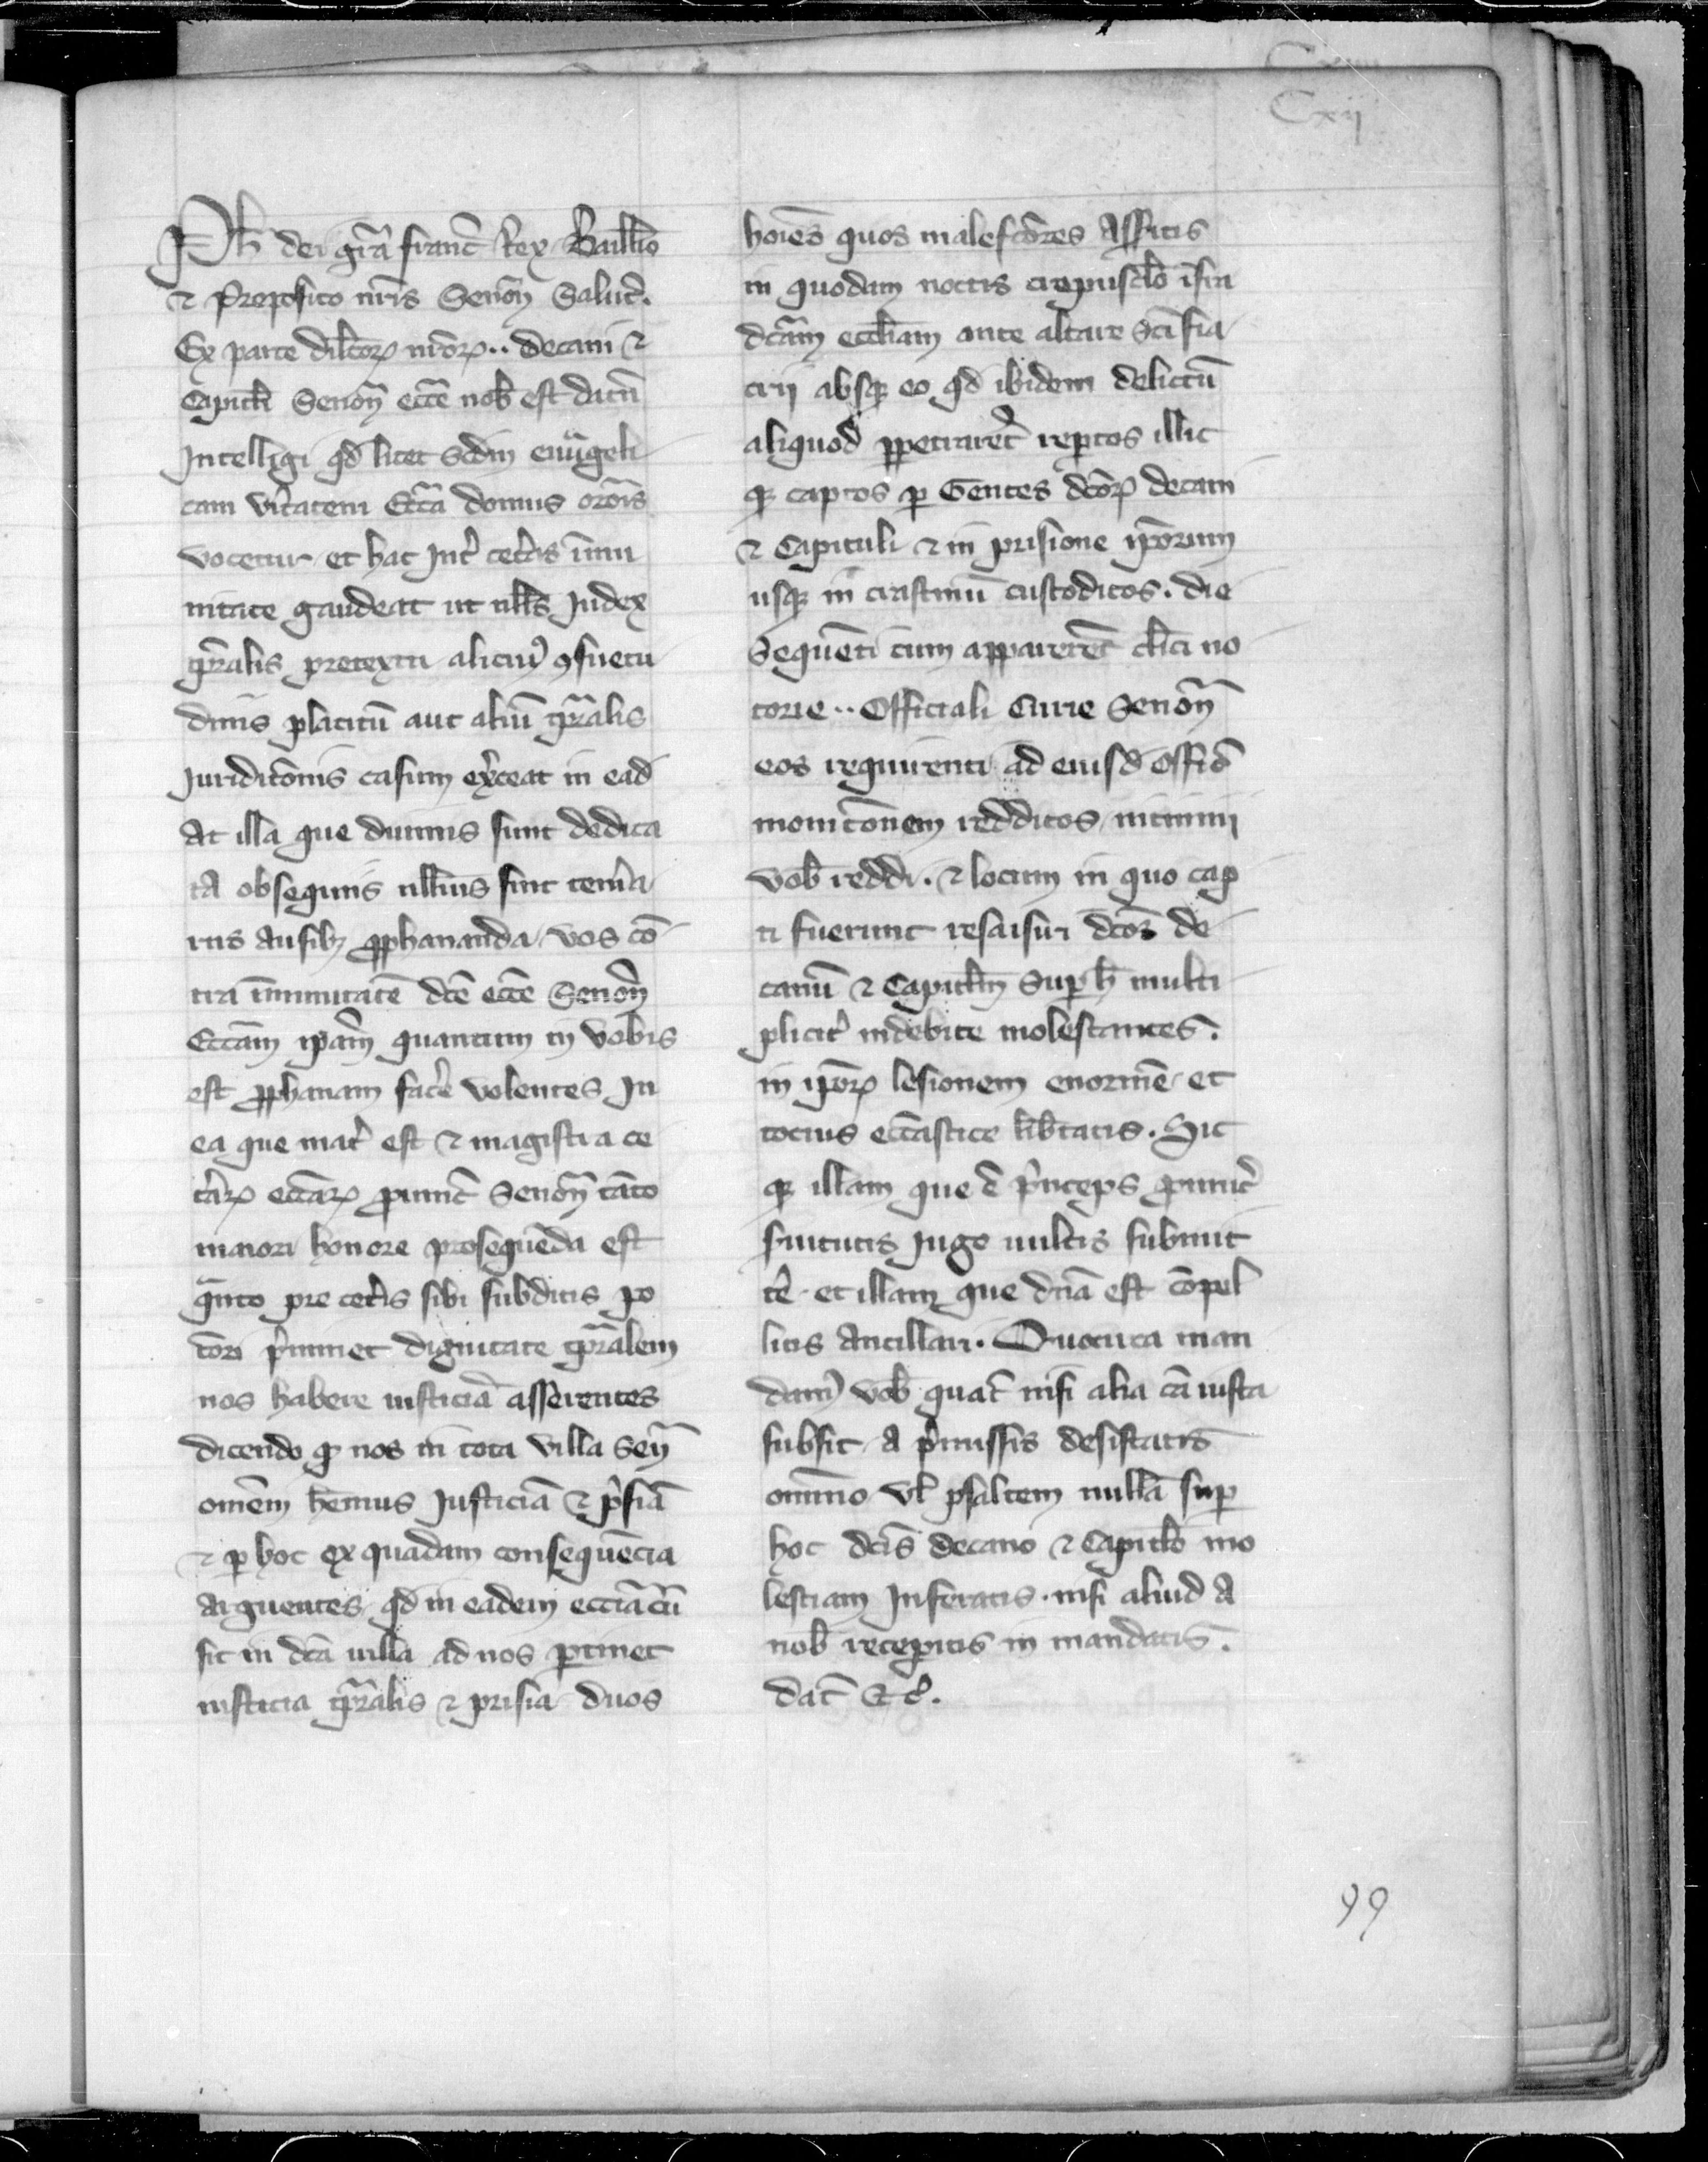 Cxij
Ph dei gr̃a franc̃ Rex Bailliuo
⁊ Preposito nr̃is Senon̄ Salut̃.
Ex parte dilc̃orꝝ nr̃orꝝ .. decani ⁊
Capitl̃i Senon̄ ecc̃e nob̃ est datũ
Intelligi qd̃ licet scd̃m euãgeli
cam ṽitatem Ecc̃a domus or̃onis
vocetur et hac Int̃ cet̃is im̃u
nitate gaudeat ut nll̃s Iudex
tp̃ralis pretextu alicuiꝰ ꝯsuetu
dinis placitũ aut aliũ tp̃ralis
Iuridic̃onis casum ex̃ceat in ead̃
at illa que diuinis sunt dedica
ta obsequiis nlliũs sint tem̃a
riis ausibꝫ ꝓphananda vos cõ
tra im̃unitatẽ dc̃e ecc̃e Senon̄
Ecc̃am ip̃am quantum in vobis
est ꝓphanam fac̃e volentes In
ea que mat̃ est ⁊ magistra ce
t̃arꝝ ecc̃arꝝ ꝓuinc̃ Senon̄ tãto
maiori honore prosequẽda est
q̃nto pre cet̃is sibi subditis po
c̃ori p̃minet dignitate tp̃ralem
nos habere iusticiã asserentes
dicendo ꝙ nos in tota villa Sen̄
om̃em hẽmus Iusticiã ⁊ p̃siã
⁊ ꝑ hoc ex quadam consequẽcia
arguentes qd̃ in eadem ecc̃ia cũ
sit in dc̃a villa ad nos ꝑtinet
iusticia tp̃ralis ⁊ prisia duos
hoĩes quos malefc̃ores asseritis
in quodam noctis crepuscl̃o ĩfra
dc̃am eccl̃iam ante altare Sc̃i fia
crii absqꝫ eo qd̃ ibidem delictũ
aliquod ꝑpetrarẽt reꝑtos illic
qꝫ captos ꝑ Gentes dc̃orꝝ decani
⁊ Capituli ⁊ in prisione ip̃orum
usqꝫ in crastinũ custoditos. die
Sequẽti cum apparerẽt cl̃ici no
torie .. Officiali Curie Senon̄
eos requirenti ad eiusd̃ Offic̃
monic̃onem redditos nitimini
vob̃ reddi. ⁊ locum in quo cap
ti fuerunt resaisiri dc̃os de
canũ ⁊ Capitl̃m Suꝑ h̃ multi
plicit̃ indebite molestantes.
in ip̃orꝝ lesionem enormẽ et
tocius ecc̃astice lib̃tatis. Sic
qꝫ illam que ẽ p̃nceps ꝓuinc̃
s̃uitutis Iugo uultis submit
t̃e et illam que dñа est cõpel
litis ancillari. Quocirca man
damꝰ vob̃ quat̃ nisi alia cã iusta
subsit a p̃missis desistatis
om̃ino vl̃ ꝑsaltem nullã suꝑ
hoc dc̃is decano ⁊ Capitl̃o mo
lestiam Inferatis. nisi aliud a
nob̃ receperitis in mandatis.
dat̃ &c̃.
99